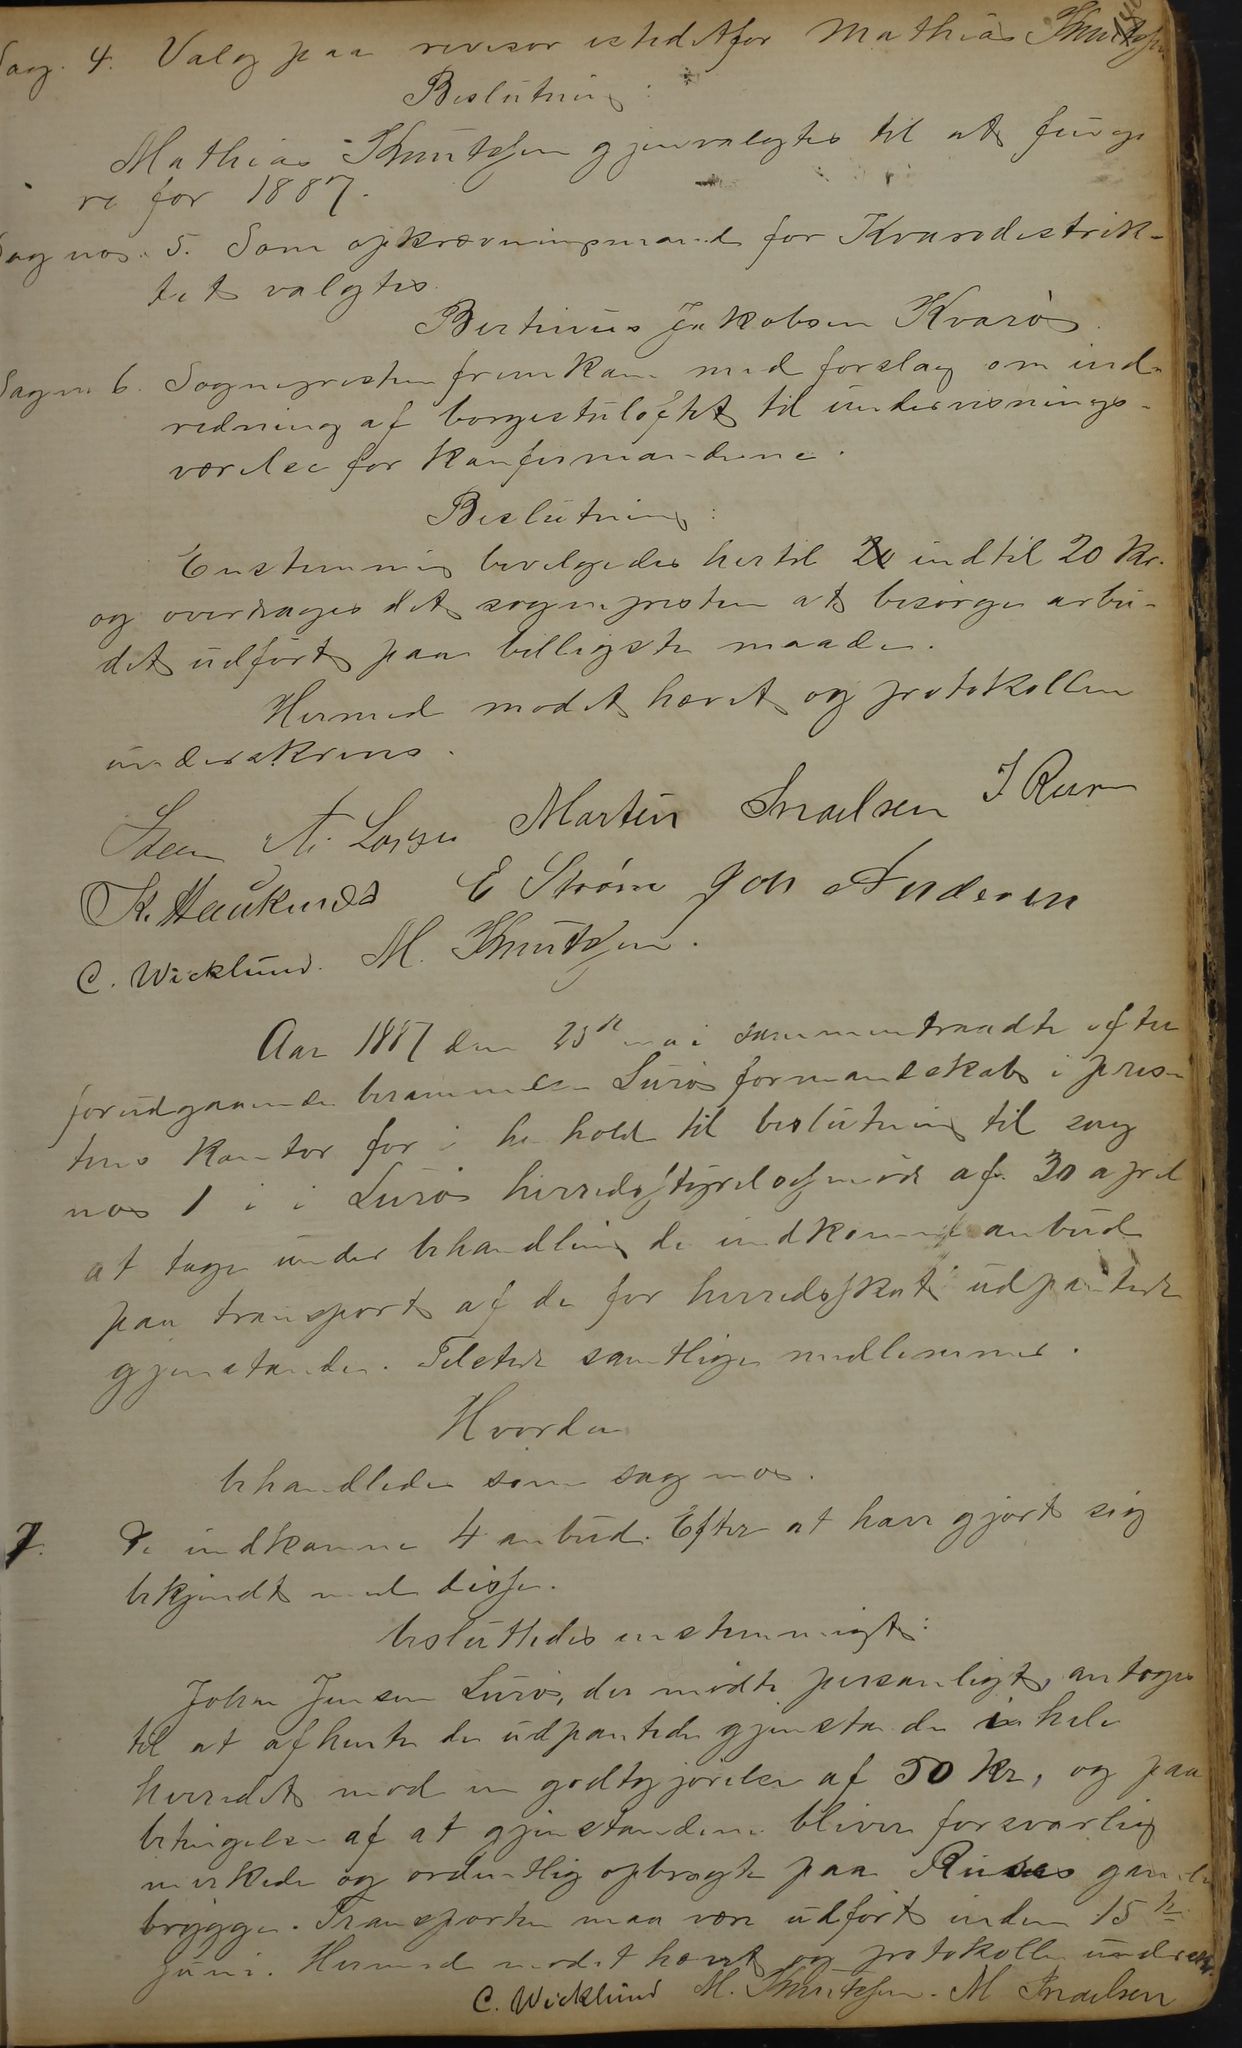 Sag. 4. Valg paa revisor istedetfor Mathias Knutssen
Beslutning:
Mathias Knutssen gjenvalgtes til at funge
re for 1887.
Sag nos. 5. Som opkrævningsmand for Kvarødistrik-
tet valgtes
Bertinius Jakobsen Kvarø.
Sag no 6. Sognepresten fremkom med forslag om ind-
redning af borgestuloftet til undervisnings-
værelse for konfirmanderne.
Beslutning:
Enstemmig bevilgedes hertil indtil 20 kr.
og overdrages det sognepresten at besørge arbei-
det udført paa billigste maade.
Hermed mødet hævet og protokollen
underskreves.
Martin Israelsen
K. Haukness E Strøm Joh Andersen
C. Wicklund. M. Knutssen.
Aar 1887 den 25de mai sammentraadte efter
forudgaaende berammelse Lurøs formandskab i pres-
tens kontor for i henhold til beslutning til sag
nos 1 i Lurøs herredsstyrelsesmøde af 30 april
at tage under behandling de indkomne anbud
paa transport af de for herredsskat udpantede
gjenstande. Tilstede samtlige medlemmer.
Hvorda
behandledes som sag nos.
7. De indkomne 4 anbud. Efter at have gjort sig
bekjendt med disse.
besluttedes enstemmigt:
Johan Jensen Lurø, der mødte personligt, antoges
til at afhente de udpantede gjenstande i hele
herredet mod en godtgjørelse af 50 kr, og paa
betingelse af at gjenstandene bliver forsvarlig
merkede og ordentlig opbragte paa gamle
brygge. Transporten maa være udført inden 15de
juni. Hermed mødet hævet og protokollen underskr.
C. Wicklund M. Knutssen. M Israelsen